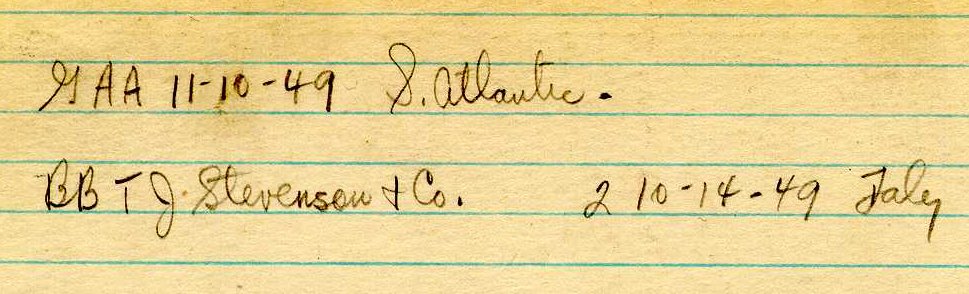 GAA 11-10-49 S. Atlantic.
BB T J. Stevenson & Co. 2 10-14-49